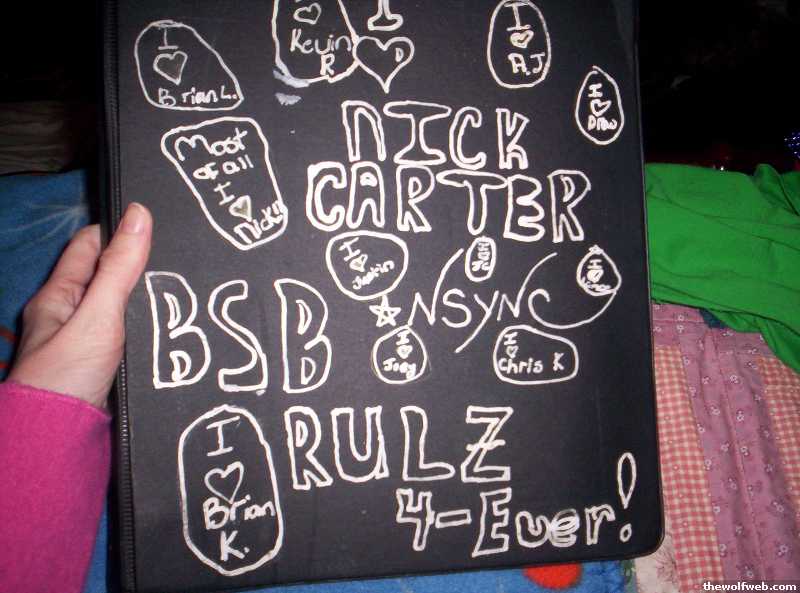 I
♡
Brian L.
I
♡
Kevin
R
I
♡
D
I
♡
A.J
I
♡
Drew
Most
of all
I
♡
Nick!!
NICK
CARTER
I
♡
Justin
I
♡
JC
I
♡
☆NSYNC
BSB
I
♡
Joey
I
♡
Chris K
I
♡
Brian
K.
RULZ
4-Ever!
thewolfweb.com